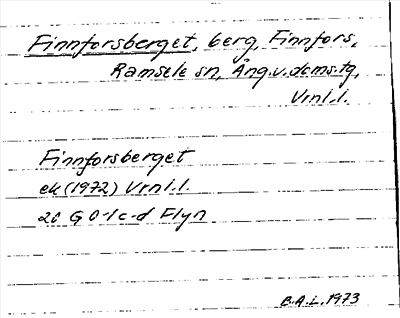 Finnforsberget, berg, Finnfors,
Ramsele sn, Ång.v.doms.tg,
Vrnl.l.
Finnforsberget
ek (1972) Vrnl.l.
20 G 0-1 c-d Flyn
B.A.L. 1973